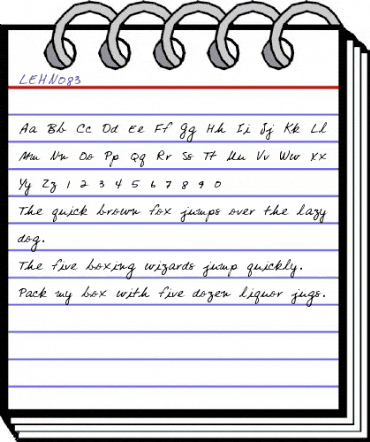 LEHN083
Aa Bb Cc Dd Ee Ff Gg Hh Ii Jj Kk Ll
Mm Nn Oo Pp Qq Rr Ss Tt Uu Vv Ww Xx
Yy Zz 1 2 3 4 5 6 7 8 9 0
The quick brown fox jumps over the lazy
dog.
The five boxing wizards jump quickly.
Pack my box with five dozen liquor jugs.